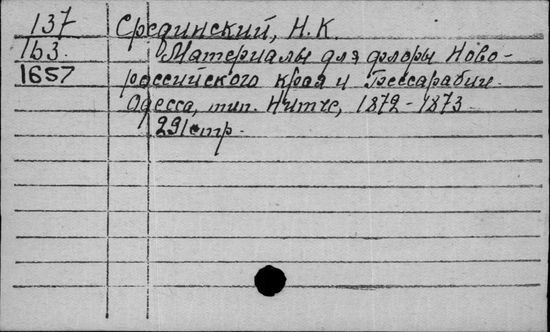 137 Срединский, Н.К.
163. Материалы для флоры Ново-
1657 российского края и Бессарабии.
Одесса, тип. Нитче, 1872-1873
291стр.